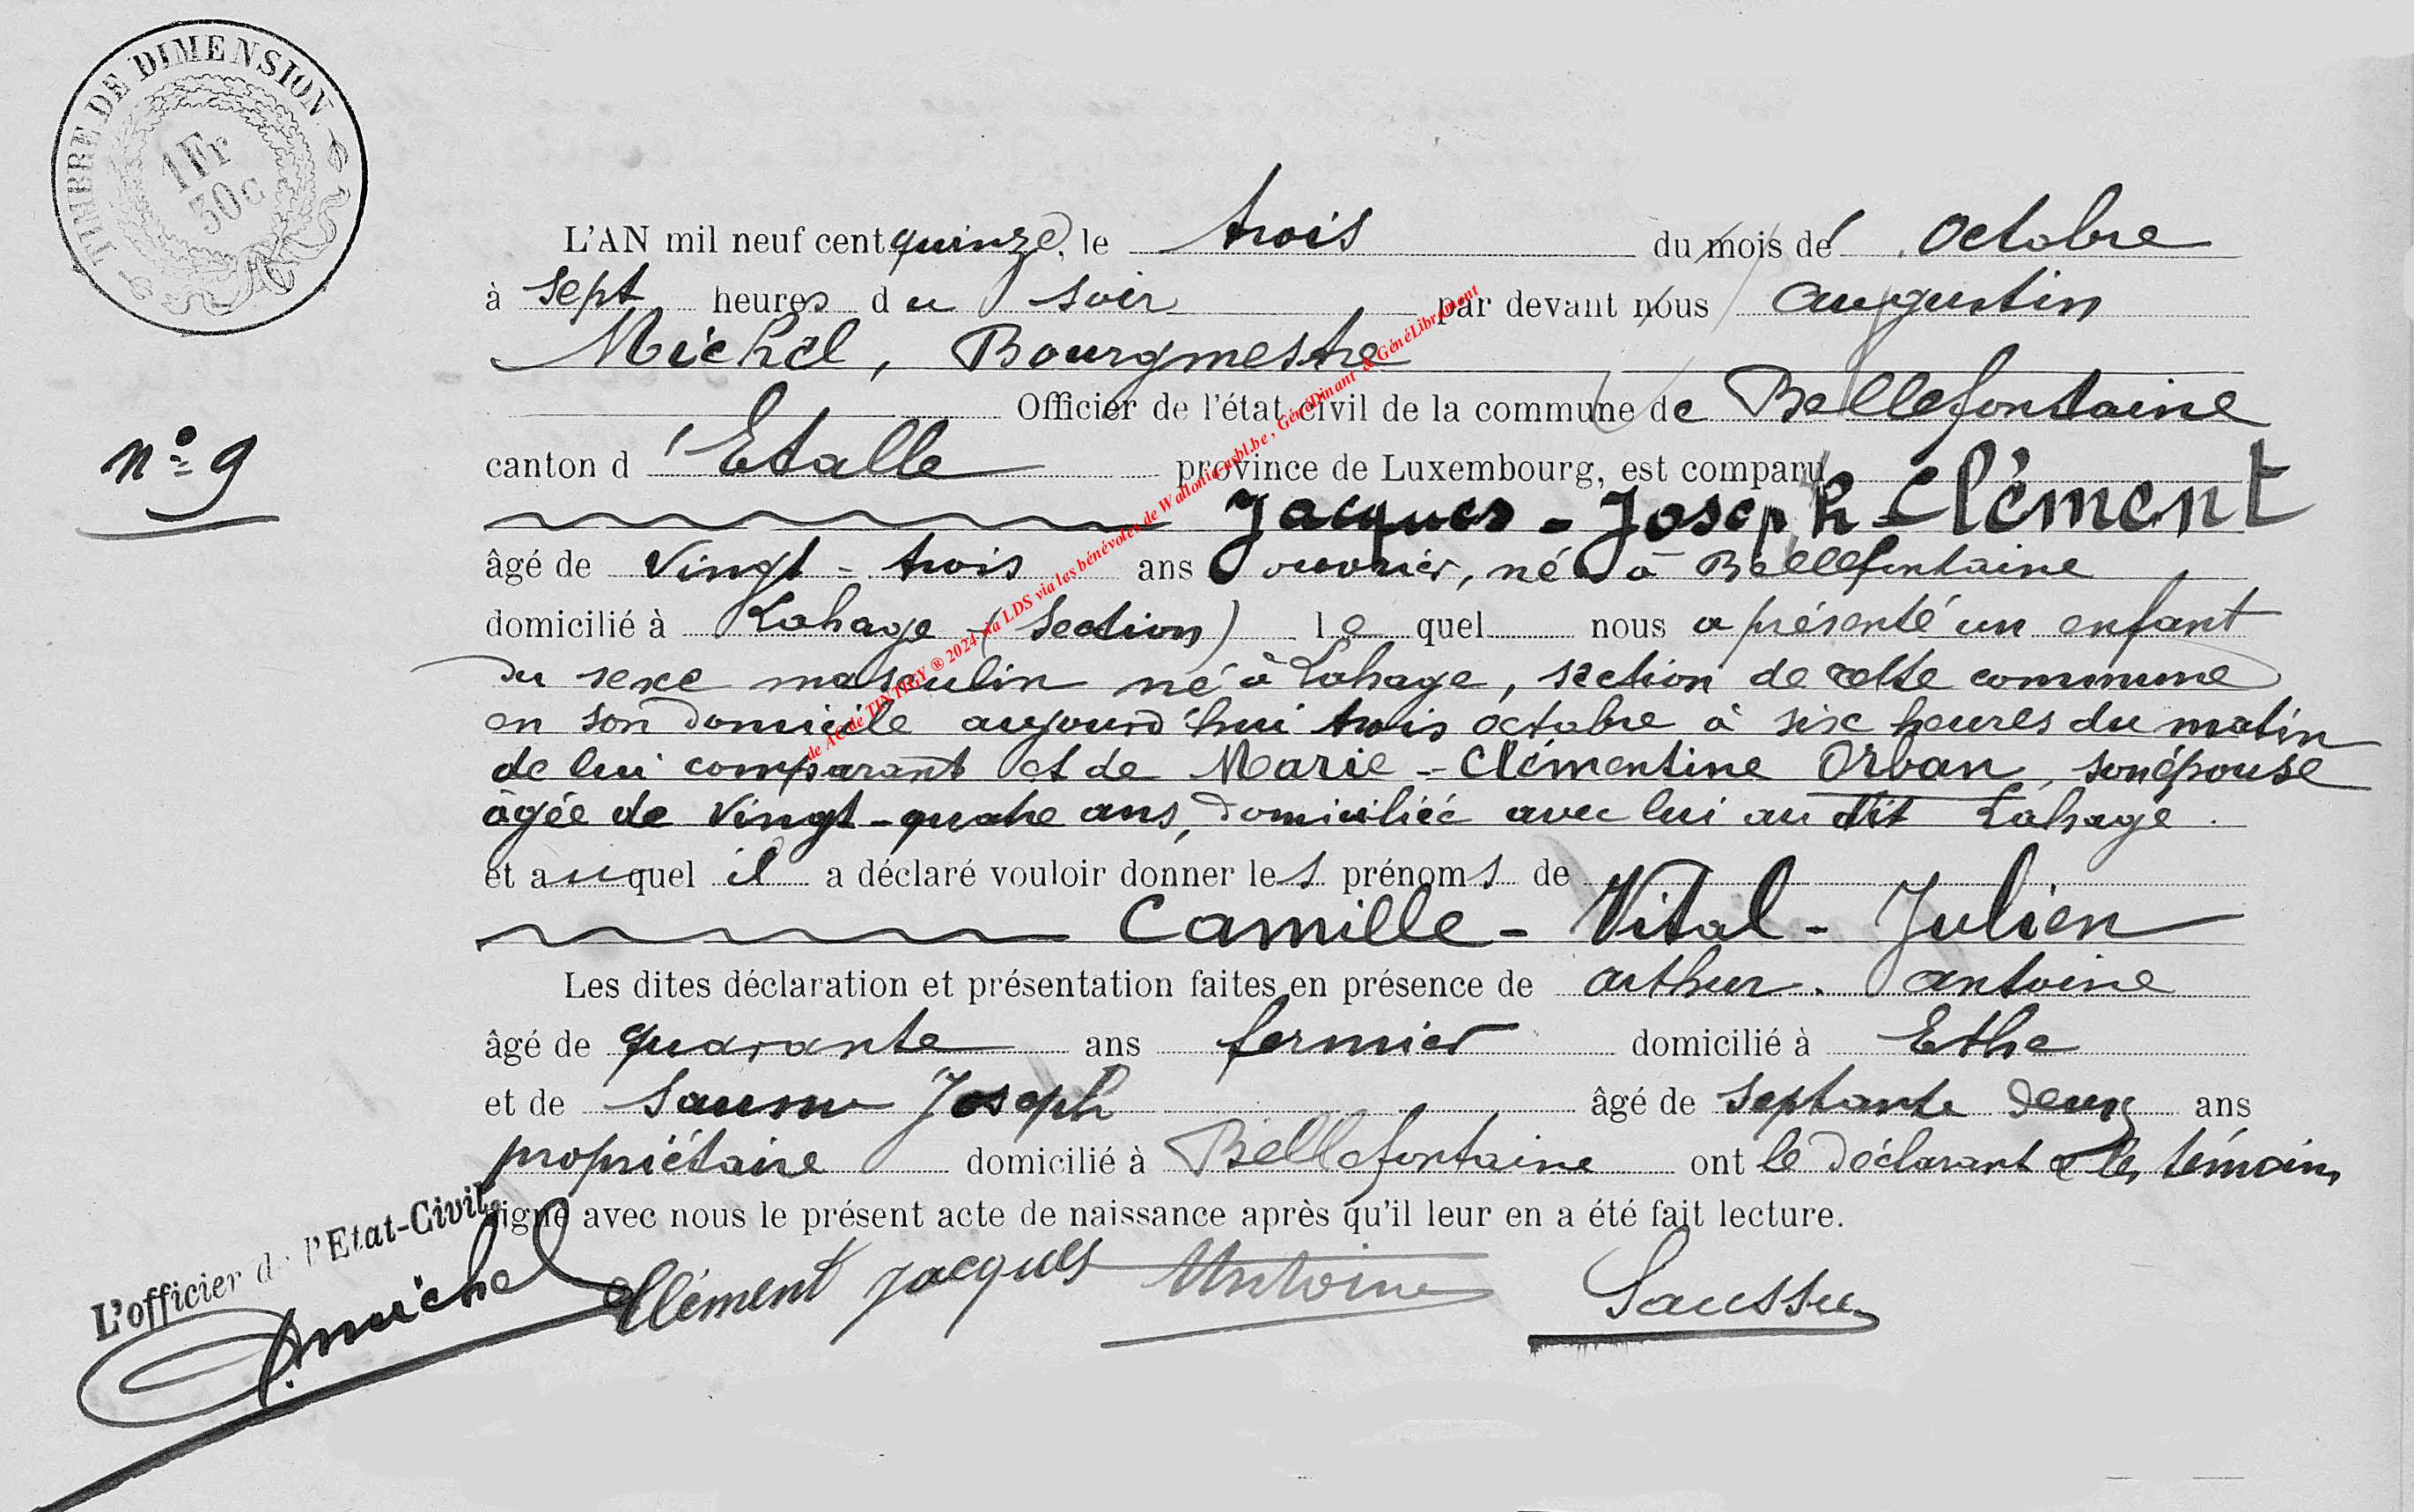 TIMBRE DE DIMENSION
1Fr
30c
L'AN mil neuf cent quinze, le trois du mois de Octobre
à sept heures du soir par devant nous Augustin
Michel, Bourgmestre
Officier de l'état civil de la commune de Bellefontaine
n° 9
canton d'Etalle province de Luxembourg, est comparu
Jacques - Joseph Clément
âgé de vingt - trois ans ouvrier, né à Bellefontaine
domicilié à Lahage (section) le quel nous a présenté un enfant
du sexe masculin né à Lahage, section de cette commune
en son domicile aujourd'hui trois octobre à six heures du matin
de lui comparant et de Marie - Clémentine Orban, son épouse
âgée de vingt-quatre ans, domiciliée avec lui au dit Lahage.
et auquel il a déclaré vouloir donner les prénoms de
Camille - Vital - Julien
Les dites déclaration et présentation faites en présence de Arthur. Antoine
âgé de quarante ans fermier domicilié à Ethe
et de Joseph âgé de septante deux ans
propriétaire domicilié à Bellefontaine ont le déclarant & les témoins
signé avec nous le présent acte de naissance après qu'il leur en a été fait lecture.
L'officier de l'Etat-Civil,
AMichel Clément Jacques Antoine Saussu
de AC de TINTIGY ® 2024 via LDS via les bénévoles de Wallonia-asbl.be, GénéDinant & GénéLibramont